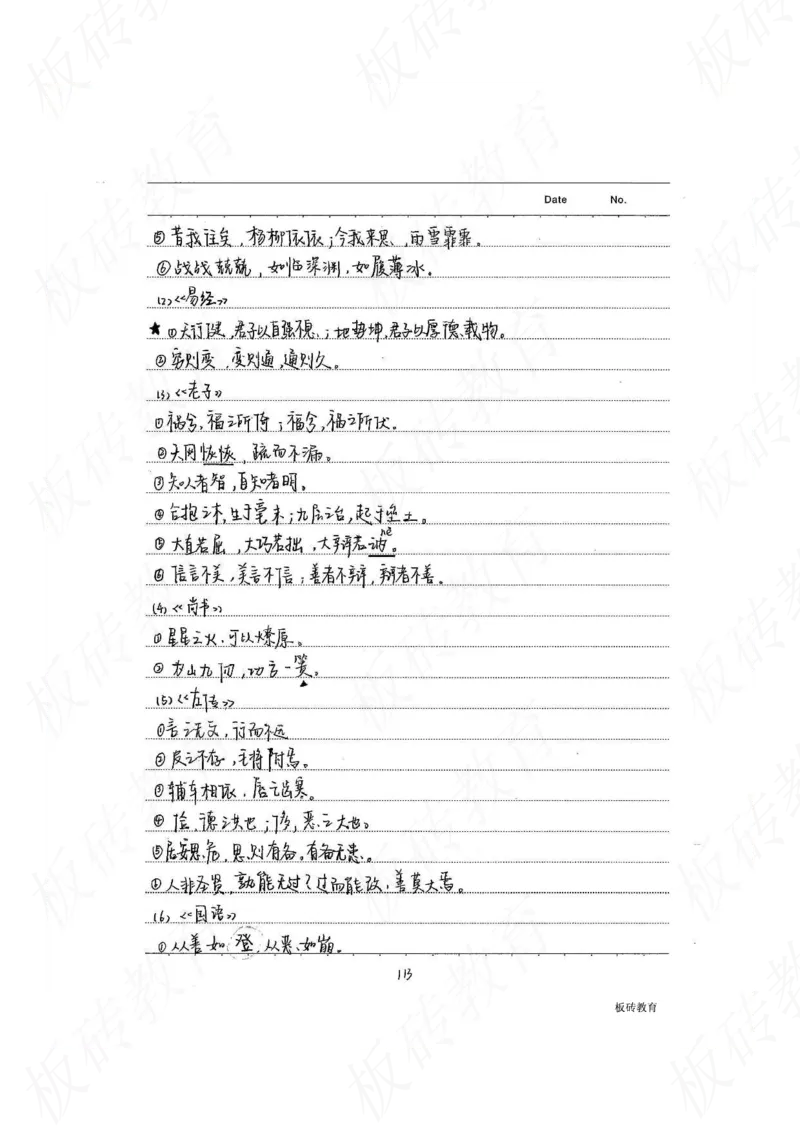 Date No.
⑤昔我往矣,杨柳依依;今我来思,雨雪霏霏。
⑥战战兢兢,如临深渊,如履薄冰。
(2)《易经》
★①天行健,君子以自强不息;地势坤,君子以厚德载物。
②穷则变,变则通,通则久。
(3)《老子》
①祸兮,福之所倚;福兮,祸之所伏。
②天网恢恢,疏而不漏。
③知人者智,自知者明。
④合抱之木,生于毫末;九层之台,起于垒土。
ne
⑤大直若屈,大巧若拙,大辩若讷。
⑥信言不美,美言不信;善者不辩,辩者不善。
(4)《尚书》
①星星之火,可以燎原。
②为山九仞,功亏一篑。
(5)《左传》
①言之无文,行而不远
②皮之不存,毛将附焉。
③辅车相依,唇亡齿寒。
④俭,德之共也;侈,恶之大也。
⑤居安思危,思则有备,有备无患。
⑥人非圣贤,孰能无过?过而能改,善莫大焉。
(6)《国语》
①从善如登,从恶如崩。
113
板砖教育
板砖教育